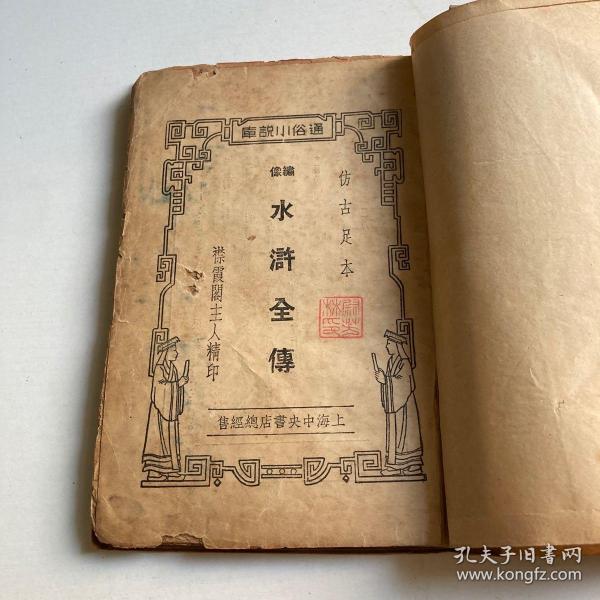 通俗小説庫
仿古足本
繡像
水滸全傳
襟霞閣主人精印
上海中央書店總經售
孔夫子旧书网
www.kongfz.com